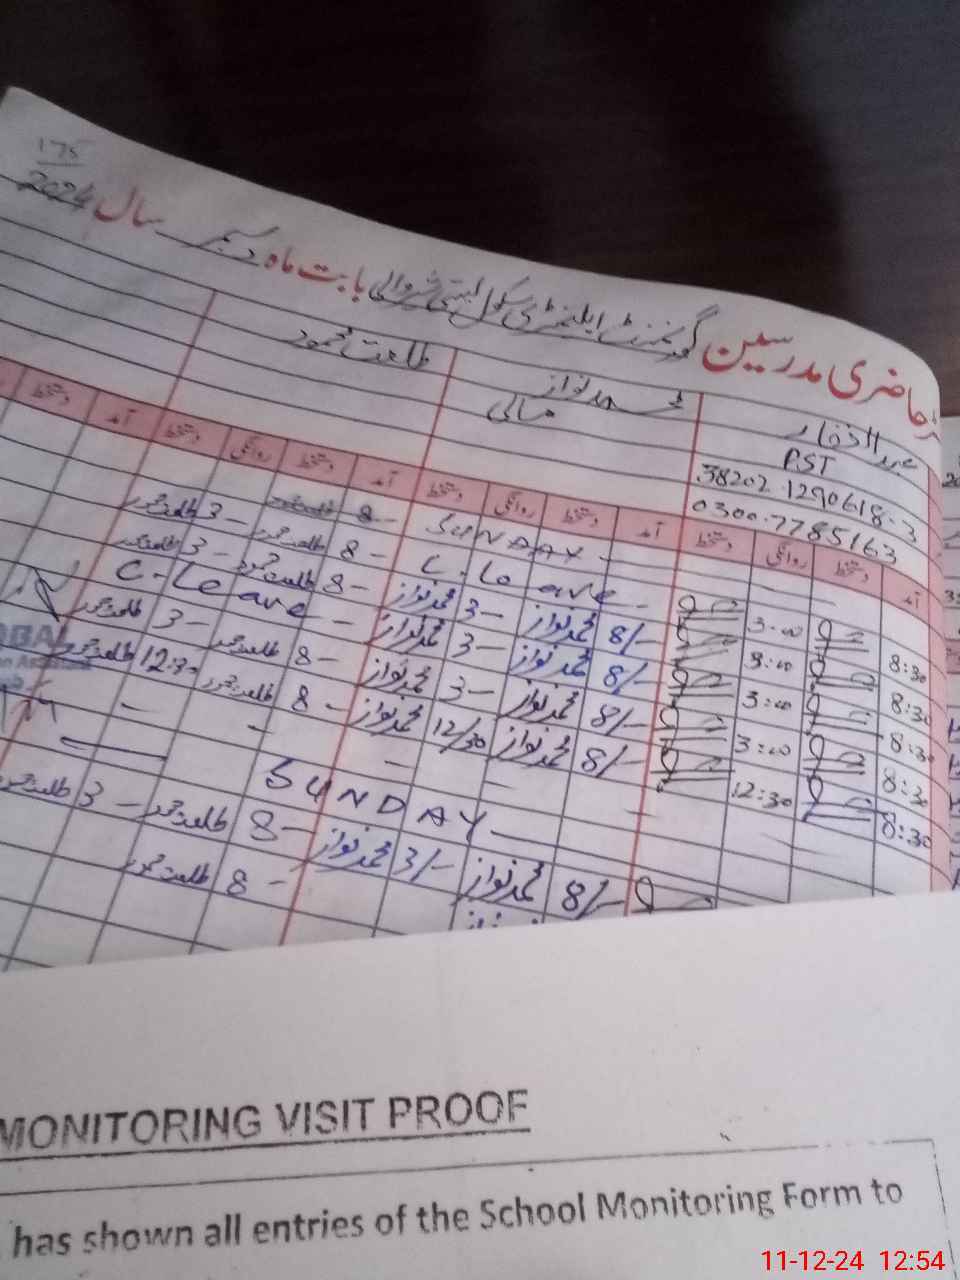 175
2024
حاضری مدرسین گورنمنٹ ایلیمنٹری سکول بستی شیروالی بابت ماہ دسمبر سال 2024
عبدالغفار محمد نواز طلعت محمود
PST مالی
38202 1290618-3
0300-7785163
آمد دستخط روانگی دستخط آمد دستخط روانگی دستخط آمد دستخط روانگی دستخط آمد دستخط
SUNDAY 8- طلعت محمود 3- طلعت محمود
8:30 3:00 C. Leave 8- طلعت محمود 3- طلعت محمود
8:30 3:00 8/- محمد نواز 3- محمد نواز 8- طلعت محمود 3- طلعت محمود
8:30 3:00 8/- محمد نواز 3- محمد نواز C-Leave
8:30 3:00 8/- محمد نواز 3- محمد نواز 8- طلعت محمود 3- طلعت محمود
8:30 12:30 8/- محمد نواز 12/30 محمد نواز 8- طلعت محمود 12:30 طلعت محمود
SUNDAY
8/- محمد نواز 3/- محمد نواز 8- طلعت محمود 3- طلعت محمود
8- طلعت محمود
MONITORING VISIT PROOF
has shown all entries of the School Monitoring Form to
11-12-24 12:54